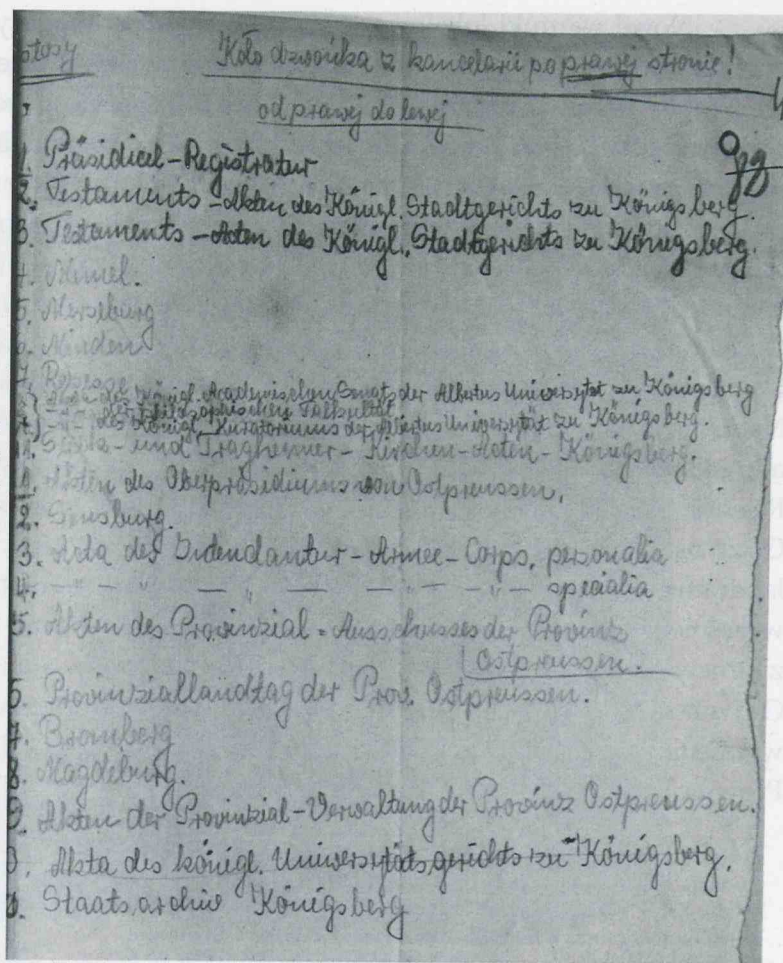 stosy Koło dzwonka z kancelarii po prawej stronie!
od prawej do lewej
1. Präsidial-Registratur
2. Testaments-Akten des Königl. Stadtgerichts zu Königsberg.
3. Testaments-Acten des Königl. Stadtgerichts zu Königsberg.
4. Memel.
5. Merseburg
6. Minden
7.
Akten des Königl. Academischen Senats der Albertus Universytät zu Königsberg
-"- der Philosophischen Fakultät
-"- des Königl. Kuratoriums der Albertus Universytät zu Königsberg.
11. und Tragheimer-Kirchen-Acten-Königsberg.
1. Akten des Oberpräsidiums von Ostpreussen.
2. Sensburg.
3. Acta des Indendantur-Armee-Corps, personalia
4. -"- — -"- — — — -"- — -"- — specialia
5. Akten des Provinzial=Ausschusses der Provinz
Ostpreussen.
6. Provinziallandtag der Prov. Ostpreussen.
7. Bromberg
8. Magdeburg.
9. Akten der Provinzial-Verwaltung der Provinz Ostpreussen.
0. Akta des königl. Universytäts,gerichts zu Königsberg.
Staats,archiv Königsberg